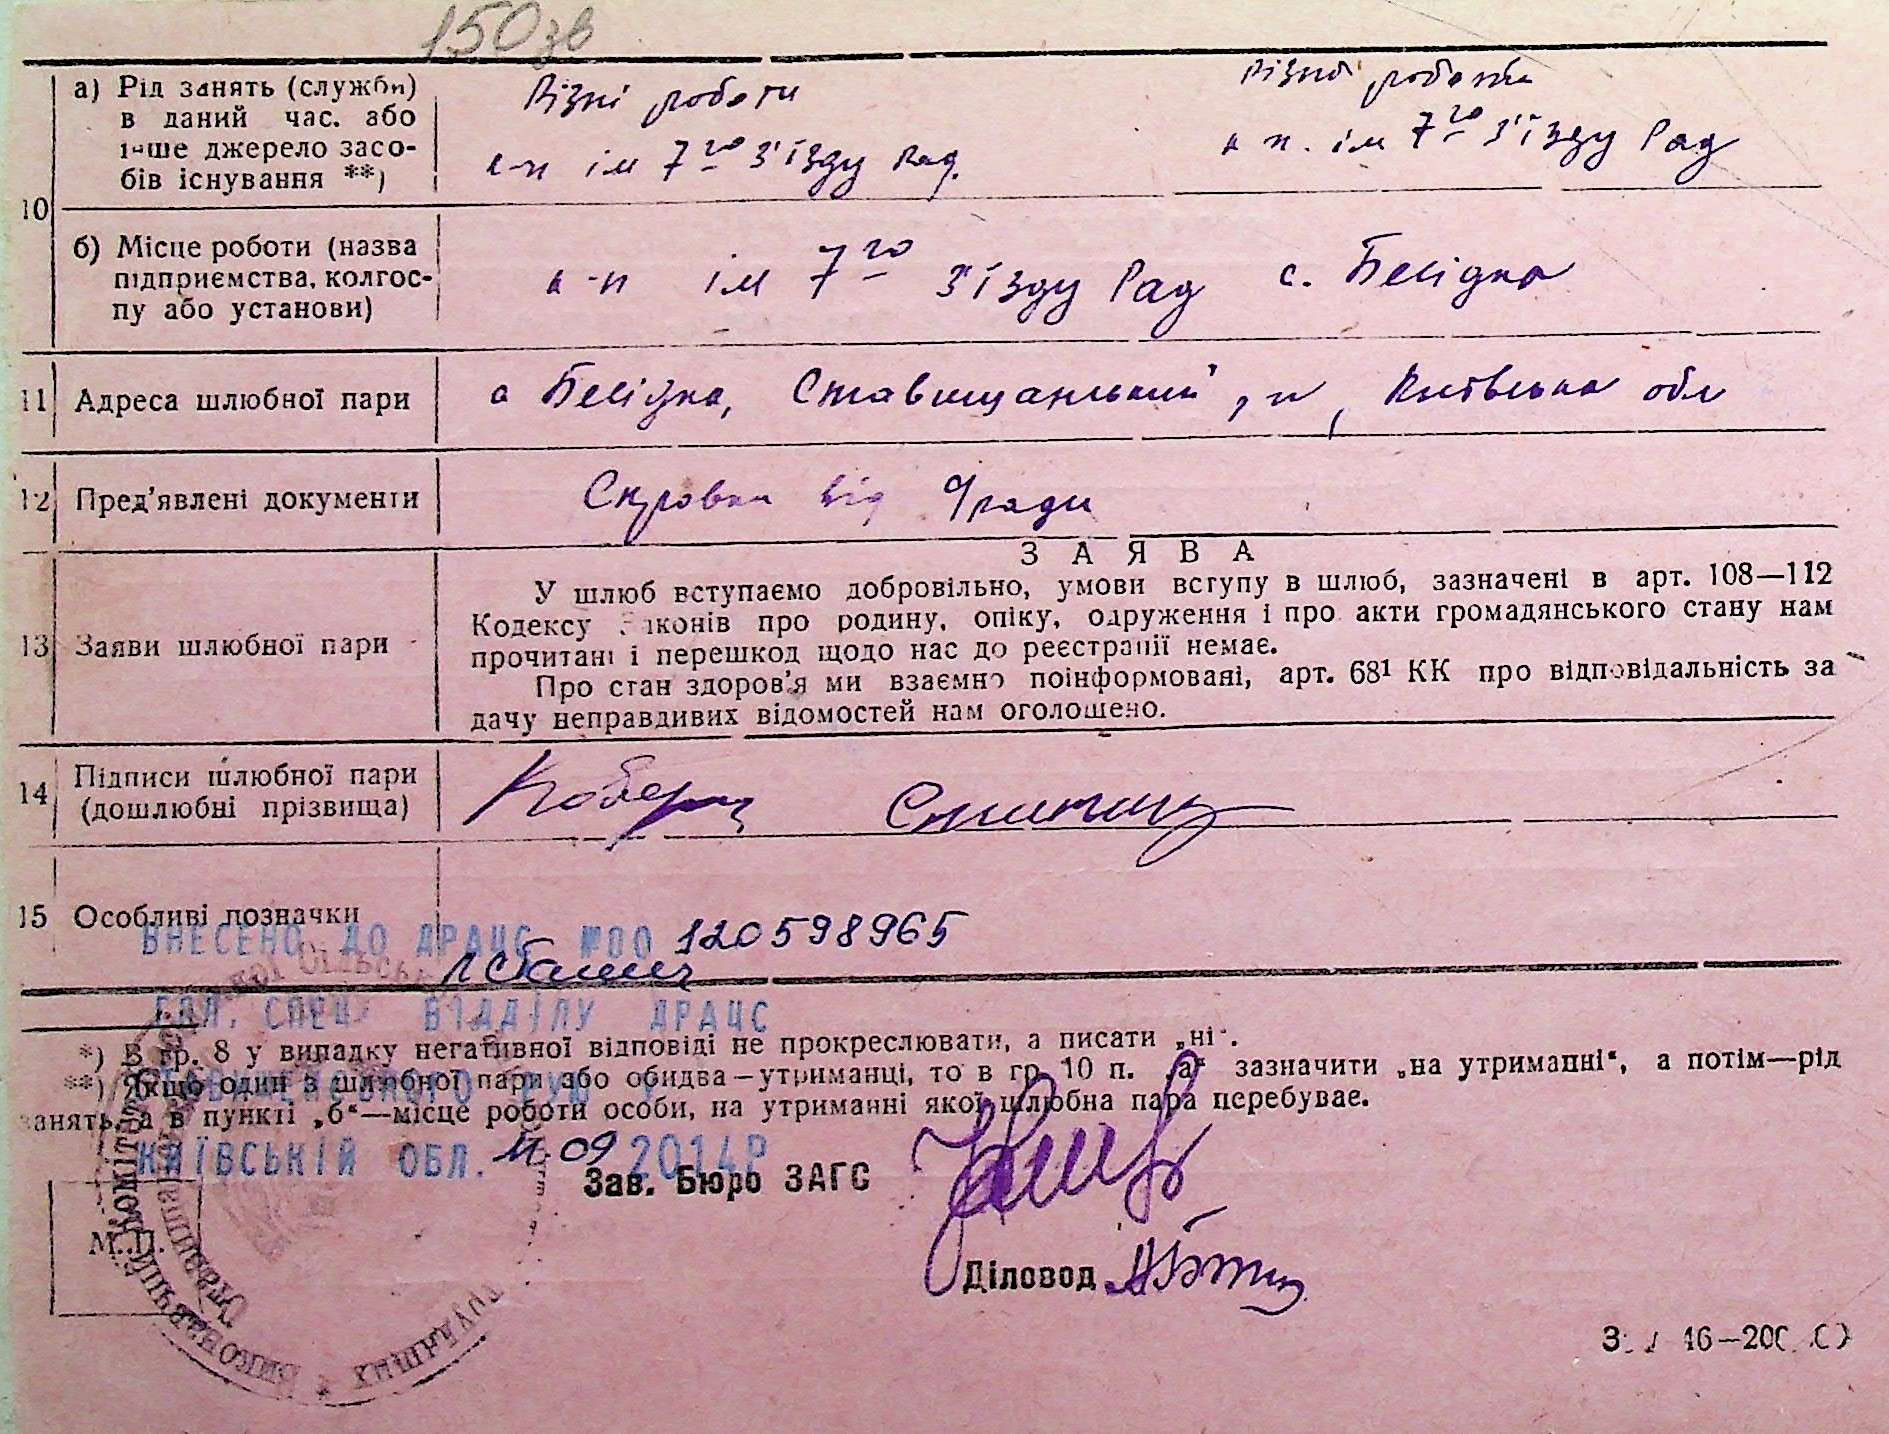 150 зв
а) Рід занять (служби) в даний час. або інше джерело засобів існування **)
Різні роботи
к-п ім 7го З'їзду Рад.
Різні роботи
к п. ім 7го З'їзду Рад
10
б) Місце роботи (назва підприємства, колгоспу або установи)
к-п ім 7го З'їзду Рад с. Бесідка
11 Адреса шлюбної пари
с Бесідка, Ставищанський р-н, Київська обл
12 Пред'явлені документи
Справки від
13 Заяви шлюбної пари
ЗАЯВА
У шлюб вступаємо добровільно, умови вступу в шлюб, зазначені в арт. 108—112
Кодексу Законів про родину, опіку, одруження і про акти громадянського стану нам
прочитані і перешкод щодо нас до реєстрації немає.
Про стан здоров'я ми взаємно поінформовані, арт. 68¹ КК про відповідальність за
дачу неправдивих відомостей нам оголошено.
14 Підписи шлюбної пари
(дошлюбні прізвища)
15 Особливі позначки
ВНЕСЕНО ДО ДРАЦС №00 120598965
ГОЛ. СПЕЦ. ВІДДІЛУ ДРАЦС
*) В гр. 8 у випадку негативної відповіді не прокреслювати, а писати „ні".
**) Якщо один з шлюбної пари або обидва—утриманці, то в гр. 10 п. „а" зазначити „на утриманні", а потім—рід
занять, а в пункті „б"—місце роботи особи, на утриманні якої шлюбна пара перебуває.
КИЇВСЬКІЙ ОБЛ. 11.09 2014Р
Зав. Бюро ЗАГС
М. П.
Діловод
ВИКОНАВЧИЙ КОМІТЕТ
ТРУДЯЩИХ